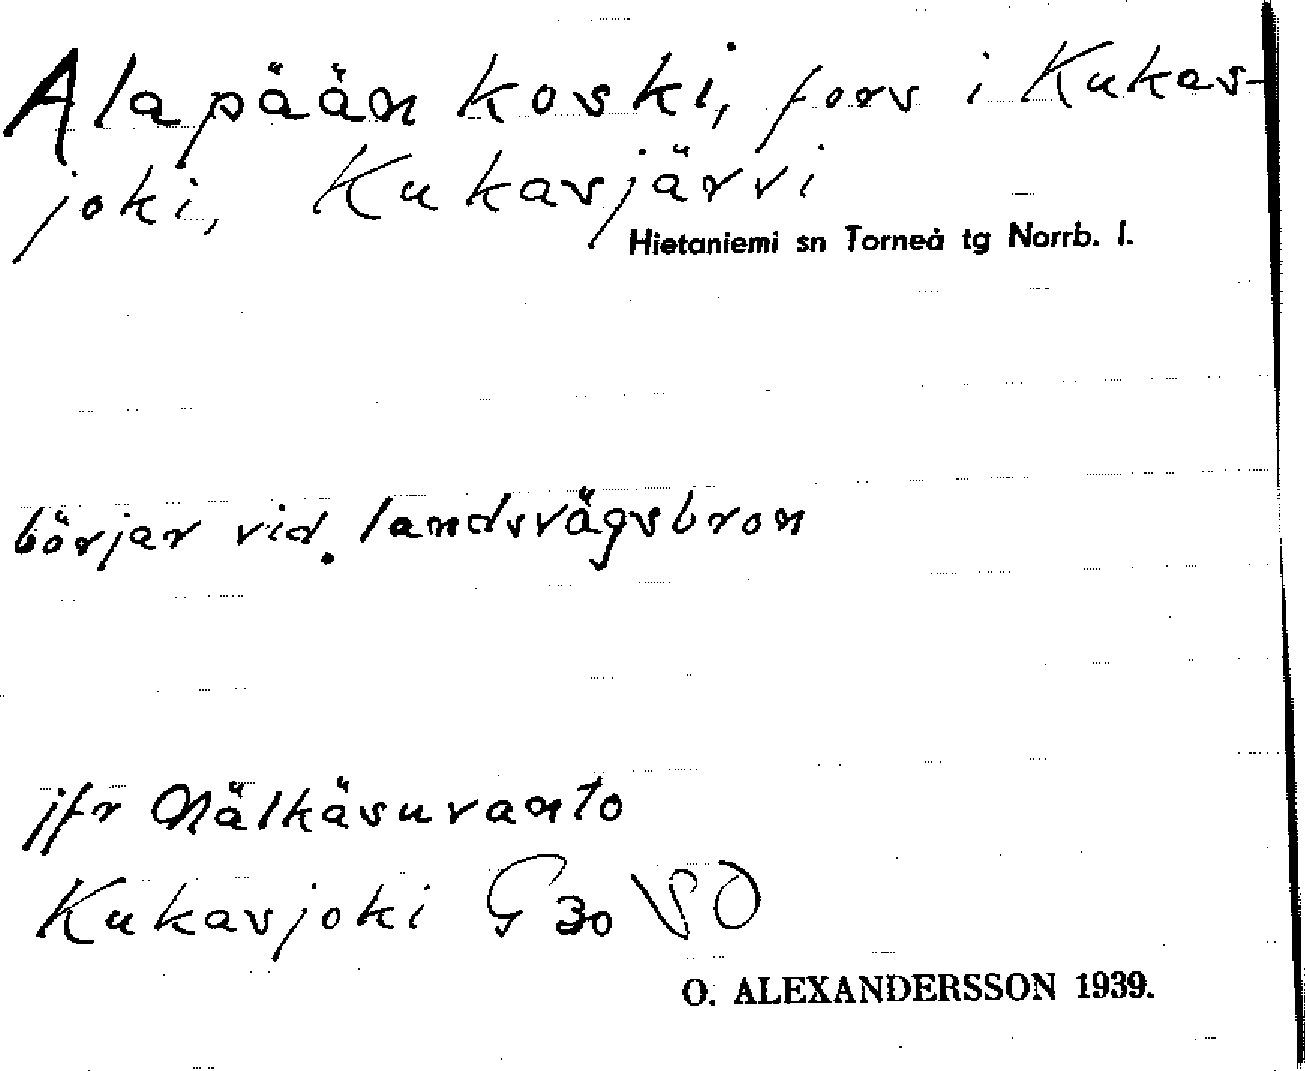 Alapään koski, fors i Kukas-
joki, Kukasjärvi
Hietaniemi sn Torneå tg Norrb. l.
börjar vid landsvägsbron
jfr Nälkäsuvanto
Kukasjoki G 30 SO
O. ALEXANDERSSON 1939.